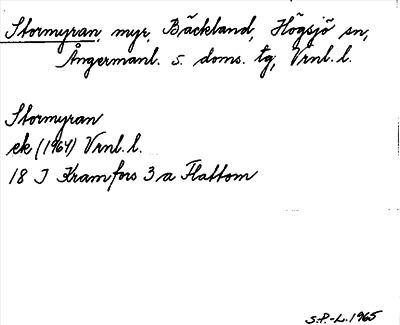 Stormyran, myr, Bäckland, Högsjö sn,
Ångermanl. s. doms. tg, Vrnl. l.
Stormyran
ek (1964) Vrnl. l.
18 J Kramfors 3 a Flattom
S.P.-L. 1965